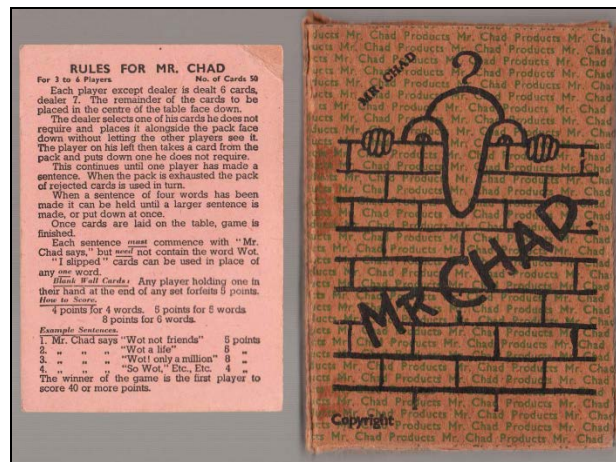 RULES FOR MR. CHAD
For 3 to 6 Players No. of Cards 50
Each player except dealer is dealt 6 cards,
dealer 7. The remainder of the cards to be
placed in the centre of the table face down.
The dealer selects one of his cards he does not
require and places it alongside the pack face
down without letting the other players see it.
The player on his left then takes a card from the
pack and puts down one he does not require.
This continues until one player has made a
sentence. When the pack is exhausted the pack
of rejected cards is used in turn.
When a sentence of four words has been
made it can be held until a larger sentence is
made, or put down at once.
Once cards are laid on the table, game is
finished.
Each sentence must commence with "Mr.
Chad says," but need not contain the word Wot.
"I slipped" cards can be used in place of
any one word.
Blank Wall Cards: Any player holding one in
their hand at the end of any set forfeits 5 points.
How to Score.
4 points for 4 words. 5 points for 5 words
8 points for 6 words.
Example Sentences.
1. Mr. Chad says "Wot not friends" 5 points
2. „ „ „ "Wot a life" 5 „
3. „ „ „ "Wot! only a million" 8 „
4. „ „ „ "So Wot," Etc., Etc. 4 „
The winner of the game is the first player to
score 40 or more points.
MR. CHAD
?
MR CHAD.
Copyright
Mr. Chad Products